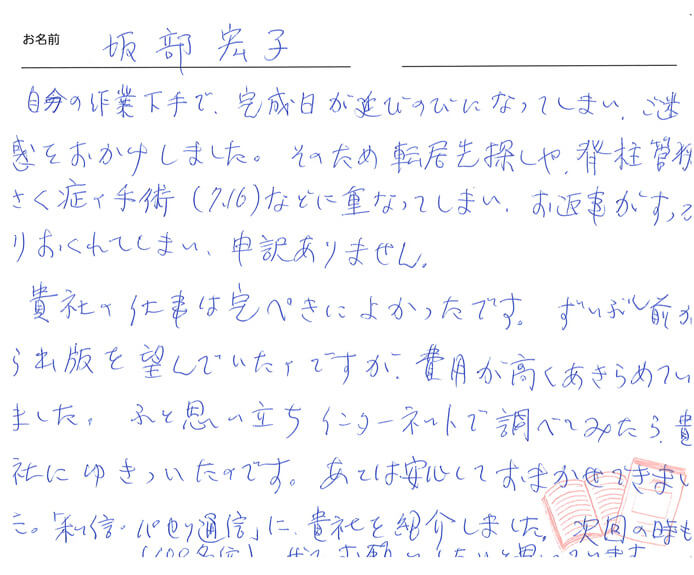 お名前 坂部宏子
自分の作業下手で、完成日が延びのびになってしまい、ご迷
惑をおかけしました。そのため転居先探しや、脊柱管狭
さく症の手術(7.16)などに重なってしまい、お返事がすっか
りおくれてしまい、申訳ありません。
貴社の仕事は完ぺきによかったです。ずいぶん前か
ら出版を望んでいたのですが、費用が高くあきらめてい
ました。ふと思い立ちインターネットで調べてみたら、貴
社にゆきついたのです。あとは安心しておまかせできまし
た。「私信・パセリ通信」に、貴社を紹介しました。次回の時も